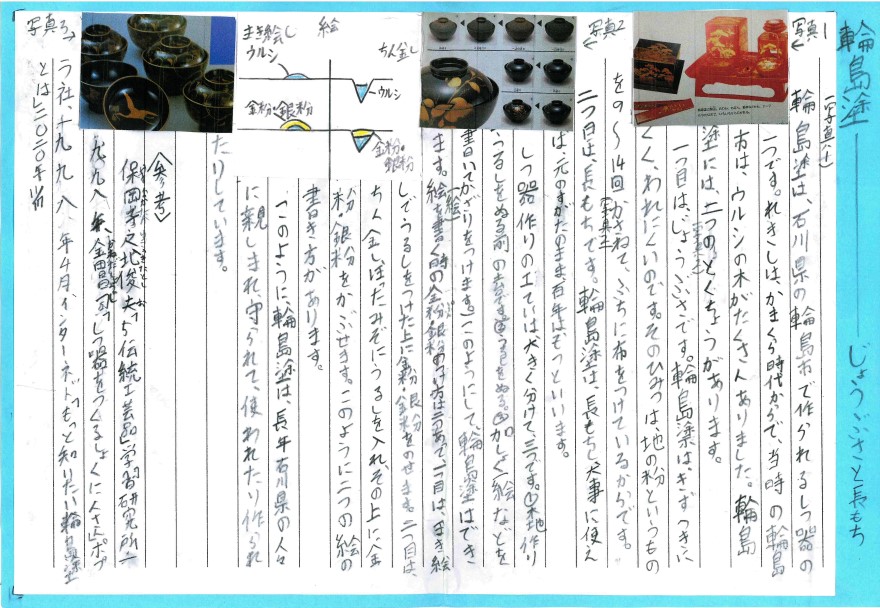 輪島塗――じょうぶさと長もち
写真1
(写真1)
輪島塗は、石川県の輪島市で作られるしっ器の
一つです。れきしは、かまくら時代からで、当時の輪島
市は、ウルシの木がたくさんありました。輪島
塗には、二つのとくちょうがあります。
一つ目は、じょうぶさです。輪島塗は、きずつきに
くく、われにくいのです。そのひみつは、地の粉というもの
をの～14回かさねて、ふちに布をつけているからです。
二つ目は、長もちです。輪島塗は、長もちし、大事に使え
ば、元のすがたのまま、百年はもつといいます。
写真2
しっ器作りの工ていは大きく分けて三つです。①木地作り
うるしをぬる前の
②うるしをぬる。③かしょく
絵などを
書いてかざりをつけます。このようにして、輪島塗はでき
ます。
絵を書く時の金粉銀粉のつけ方は二つあって、一つ目は、まき絵
しでうるしをつけた上に金粉・銀粉をのせます。二つ目は、
ちん金し、ほったみぞにうるしを入れ、その上に金
粉・銀粉をかぶせます。このように二つの絵の
書き方があります。
絵
ちん金し
ウルシ
金粉・銀粉
まき絵し
ウルシ
金粉・銀粉
このように、輪島塗は、長年石川県の人々
に親しまれ、守られて、使われたり作られ
たりしています。
写真3
〈参考〉
保岡孝之 北俊夫 伝統工芸品 学習研究所
年 金昌司 しっ器をつくるしょくにんさん ポプ
ラ社、一九九八年4月 インターネット もっと知りたい輪島塗
とは 二〇二〇年